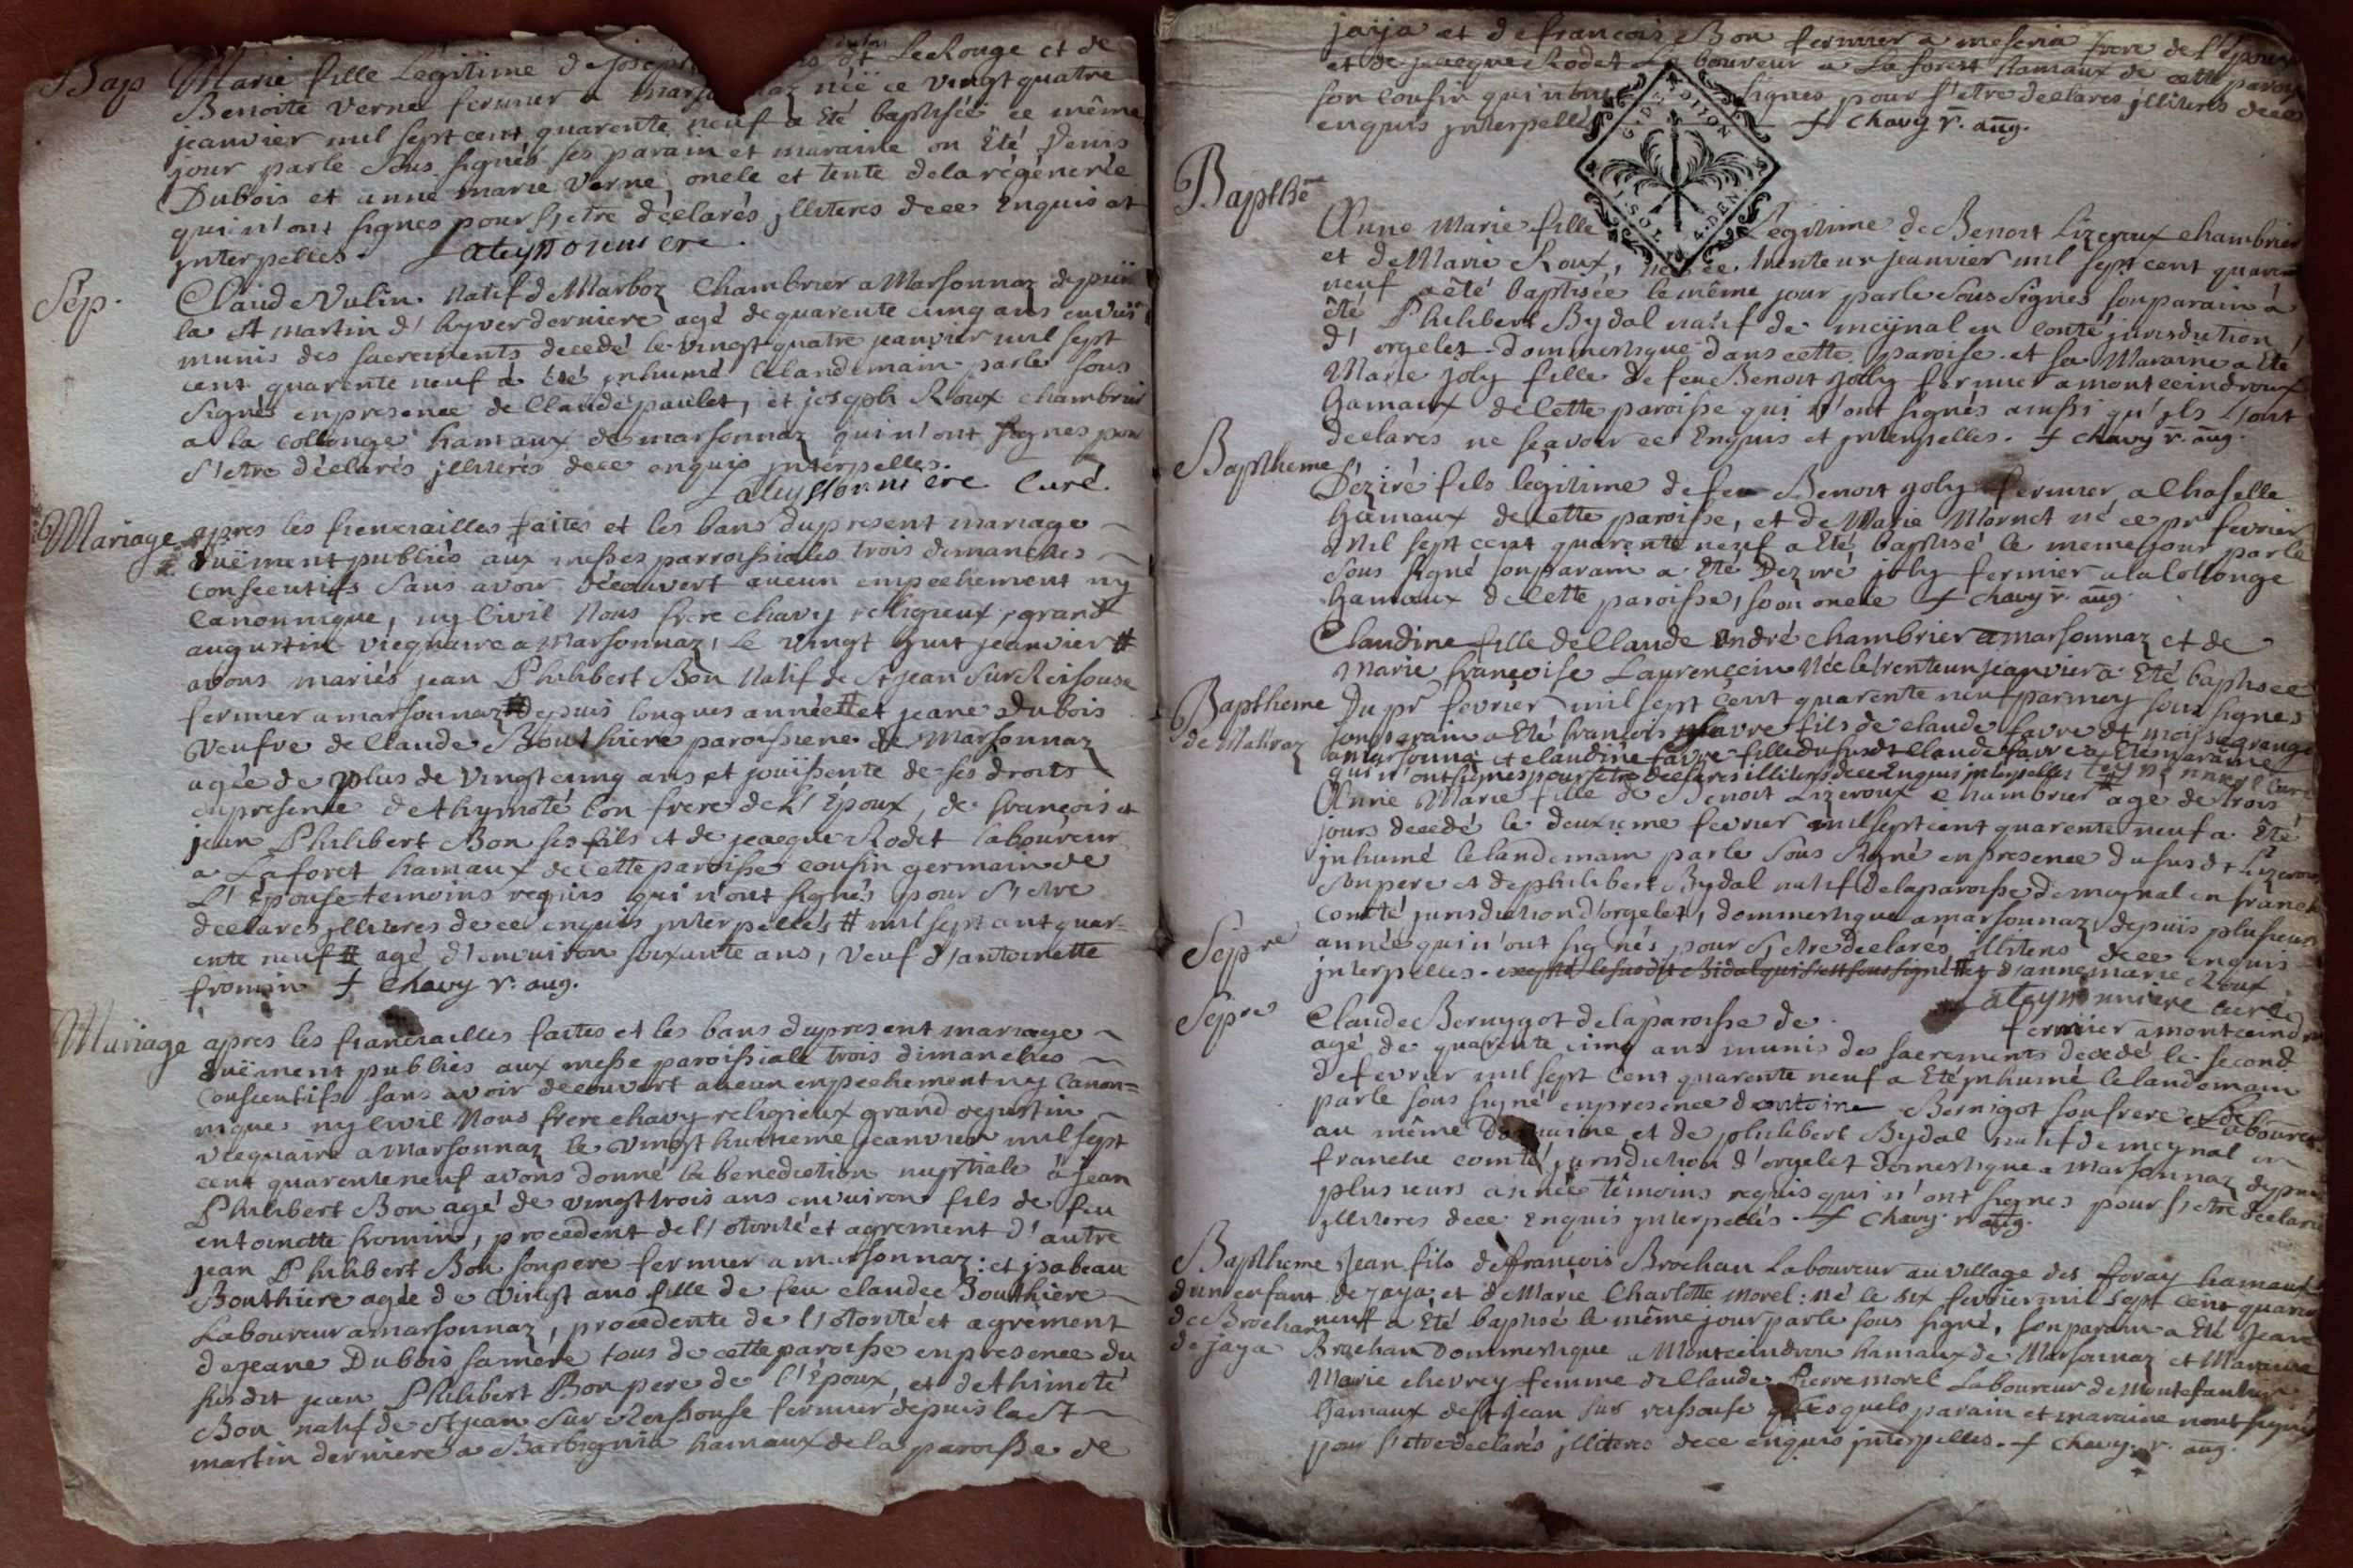 Bap
Marie fille Légitime de joseph dubois dt LeRouge et de
Benoite Verne fermier a née ce vingt quatre
jeanvier mil sept cent quarente neuf a Eté baptisée ce même
jour parle Sous signés ses parain et maraine on Eté Denis
Dubois et anne marie Verne, oncle et tente dela régénerée
qui n'ont signes pour s'etre déclarés jlliteres de ce Enquis et
jnterpelles. Lateyssonniere.
Sep.
Claude Vulin Natif de Marboz Chambrier a Marsonnaz depuis
la st martin d'hyver derniere agé de quarente cinq ans
munis des sacrements decedé le vingt quatre jeanvier mil sept
cent quarente neuf a été jnhumé le landemain parle sous
signés en presence de Claude paulet, et joseph Roux chambrier
a la Collonge hamaux de marsonnaz qui n'ont signes pour
s'etre déclarés jlliterés de ce enquis jnterpelles.
Lateyssonniere Curé.
Mariage
apres les fiencialles faites et les bans du present mariage
duëment publiés aux messes parroissiales trois dimanches
consecutifs sans avoir découvert aucun empechement ny
Canonnique, ny Civil Nous frere Chavy religieux, grand
augustin viequaire a Marsonnaz, le vingt huit jeanvier #
avons mariés jean Philibert Bon Natif de St jean Sur Reisouse
fermier a marsonnaz # depuis longues années # et jeane Dubois
Veufve de Claude Bouthiere paroissiene de Marsonnaz
agée de plus de vingt cinq ans et jouissente de ses droits
en presence de thymoté bon frere de L'Epoux, de françois et
jean Philibert Bon ses fils et de jeacque Rodet laboureur
a Laforet hamaux de cette paroisse cousin germain de
L'Epouse temoins requis qui n'ont signés pour s'etre
declares jlliteres de ce enquis jnterpellés # mil sept cent quar-
ente neuf # agé d'enuiron soixante ans, Veuf d'antoinette
fromin f Chavy r. aug.
Mariage
apres les fiancialles faites et les bans du present mariage
duëment publies aux messe paroissiale trois dimanches
Consecutifs sans avoir decouvert aucun enpechement ny Canon=
nique ny civil Nous frere chavy religieux grand ogustin
viequaire a Marsonnaz le vingt huitieme jeanvier mil sept
cent quarente neuf avons donné la benediction nuptiale à jean
Philibert Bon agé de vingt trois ans enuiron fils de feu
entoinette fromin, procedent de l'otorité et agrement d'autre
jean Philibert Bon son pere fermier a marsonnaz: et jsabeau
Bouthiere agée de vingt ans fille de feu claude Bouthiere
Laboureur a marsonnaz, procedente de l'otorité et agrément
de jeane Dubois sa mere tous de cette paroisse en presence du
susdit jean Philibert Bon pere de l'Epoux, et de thimoté
Bon natif de St jean Sur Reissouse fermier depuis la St
martin derniere a Barbignia hamaux de la paroisse de
jaya et de francois Bon fermier a meseria frere de l'Epoux
et de jeacque Rodet Laboureur a La forest hamaux de cette paroisse
son Cousin qui n'ont signes pour s'etre declares jlliteres de ce
enquis jnterpellé f Chavy r. aug.
G.DE DITION
1.SOL 4.DEN
Bapthe
Anne Marie fille Legitime de Benoit Lizeroux chambrier
et de Marie Roux, née ce trente un jeanvier mil sept cent quarente
neuf a été baptisée le même jour parle Sous Signés son parain a
été Philibert Bydal natif de meijnal en Conté jurisdiction
d'orgelet dommestique dans cette paroisse et sa Maraine a Eté
Marie Joly fille de feu Benoit Jolly fermier a montceindroux
hamaux de Cette paroisse qui n'ont signés ainssi qu'ils l'ont
declares ne sçavoir ce Enquis et jnterpelles. f Chavy r. aug.
Baptheme
Déziré fils légitime de feu Benoit joly fermier a Chaselle
hamaux de cette paroisse, et de Marie Mornet né ce pr fevrier
Mil sept cent quarente neuf a été baptisé le meme jour parle
sous signé son parain a Eté Deziré joly fermier a la Collonge
hamaux de Cette paroisse, soon oncle f Chavy r. aug.
Baptheme
de Malraz
Claudine fille de Claude André chambrier a marsonnaz et de
Marie françoise Laurençcin Née le trenteun jeanvier a Eté baptisée
Du pr fevrier mil sept cent quarente neuf par moy sous signes
son parain a Eté françois favre fils de claude favre dt
a marsonnaz et claudine favre fille du susdt Claude favre a Eté maraine
qui n'ont signes pour s'etre declares illiters de ce Enquis jnterpelles
Sepre
Anne Marie fille de Benoit Lizeroux chambrier agé de trois
jours decedé le deuxieme fevrier mil sept cent quarente neuf a Eté
jnhumé le landemain parle sous signé en presence du susdt Lizeroux
son pere et de philibert Bydal natif de la paroisse de meynal en franche
Comté jurisdiction d'orgelet, dommestique a marsonnaz depuis plusieurs
année qui n'ont signés pour s'etre declarés jlliteres de ce enquis
jnterpelles. excepté le susdit Bidal qui s'est sous signé # et d'anne marie Roux
Lateyssonniere Curé
Sepre
Claude Bernygot de la paroisse de fermier a montceindroux
agé de quarente cinq ans munis des sacrements decedé le second
de fevrier mil sept cent quarente neuf a Eté jnhumé le landemain
parle sous signé en presence d'antoine Bernigot son frere et Laboureur
au même Domaine et de philibert Bydal natif de meynal en
franche comté jurisdiction d'orgelet Domestique a Marsonnaz depuis
plusieurs année témoins requis qui n'ont signes pour s'etre declarés
jlliteres de ce Enquis jnterpellés. f Chavy r aug.
Baptheme
d'un enfant
de Brochan
de jaya
Jean fils de françois Brochan Laboureur au village des foray hamaux
de jaya et de Marie Charlotte Morel: Né le six fevrier mil sept cent quarente
neuf a Eté baptisé le même jour parle sous signé, son parain a Eté Jean
Brochan Dommestique a Montceindroux hamaux de Marsonnaz et Maraine
Marie chevrey femme de Claude Pierre morel Laboureur de Montefanty
hamaux de St jean sur reissouse lesquels parain et maraine n'ont signés
pour s'etre declarés jlliteres de ce enquis jnterpelles. f Chavy. r. aug.